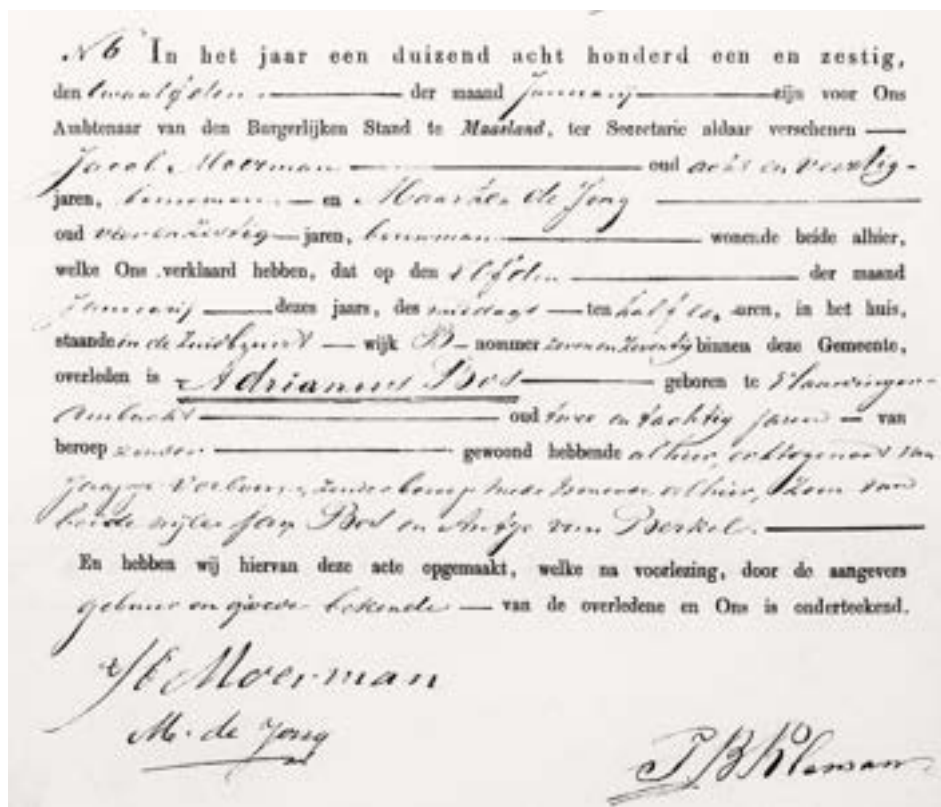 N 6 In het jaar een duizend acht honderd een en zestig,
den twaalfden der maand Januarij zijn voor Ons
Ambtenaar van den Burgerlijken Stand te Maasland, ter Secretarie aldaar verschenen
Jacob Moerman oud acht en veertig
jaren, bouwman en Maarten de Jong
oud jaren, bouwman wonende beide alhier,
welke Ons verklaard hebben, dat op den elfden der maand
Januarij dezes jaars, des middags ten half een uren, in het huis,
staande in de Zuidbuurt wijk B nommer zeven en zeventig binnen deze Gemeente,
overleden is Adrianus Bos geboren te Vlaardinger
Ambacht oud twee en tachtig jaren van
beroep zonder gewoond hebbende alhier, echtgenoot van
zonder beroep mede wonende alhier, Zoon van
beide wijlen Jan Bos en Antje van Berkel.
En hebben wij hiervan deze acte opgemaakt, welke na voorlezing, door de aangevers
gebuur en goede bekende van de overledene en Ons is onderteekend.
Jb Moerman
M. de Jong